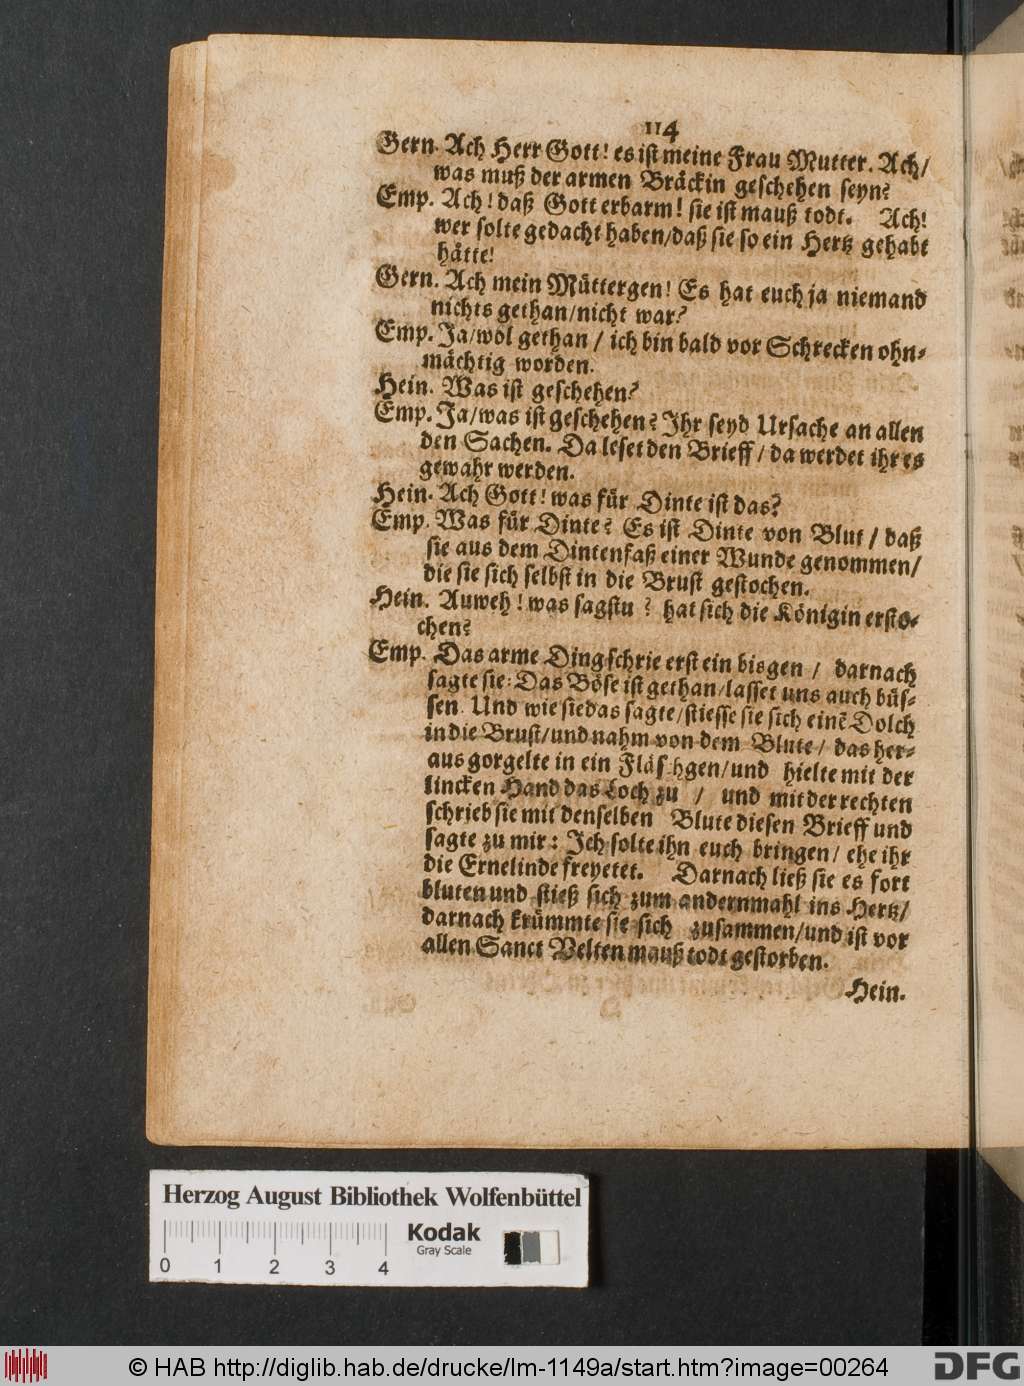 114
Gern. Ach Herr Gott! es ist meine Frau Mutter. Ach/
was muß der armen Bräckin geschehen seyn?
Emp. Ach! daß Gott erbarm! sie ist mauß todt. Ach!
wer solte gedacht haben/daß sie so ein Hertz gehabt
hätte!
Gern. Ach mein Müttergen! Es hat euch ja niemand
nichts gethan/nicht war?
Emp. Ja/wol gethan / ich bin bald vor Schrecken ohn-
mächtig worden.
Hein. Was ist geschehen?
Emp. Ja/was ist geschehen? Ihr seyd Ursache an allen
den Sachen. Da leset den Brieff / da werdet ihr es
gewahr werden.
Hein. Ach Gott! was für Dinte ist das?
Emp. Was für Dinte? Es ist Dinte von Blut / daß
sie aus dem Dintenfaß einer Wunde genommen/
die sie sich selbst in die Brust gestochen.
Hein. Auweh! was sagstu? hat sich die Königin ersto-
chen?
Emp. Das arme Ding schrie erst ein bisgen / darnach
sagte sie: Das Böse ist gethan/lasset uns auch büs-
sen. Und wie sie das sagte/stiesse sie sich einẽ Dolch
in die Brust/und nahm von dem Blute/ das her-
aus gorgelte in ein Fläschgen/und hielte mit der
lincken Hand das Loch zu / und mit der rechten
schrieb sie mit denselben Blute diesen Brieff und
sagte zu mir: Ich solte ihn euch bringen/ ehe ihr
die Ernelinde freyetet. Darnach ließ sie es fort
bluten und stieß sich zum andernmahl ins Hertz/
darnach krümmte sie sich zusammen/und ist vor
allen Sanct Velten mauß todt gestorben.
Hein.
Herzog August Bibliothek Wolfenbüttel
Kodak
Gray Scale
0 1 2 3 4
© HAB http://diglib.hab.de/drucke/lm-1149a/start.htm?image=00264
DFG